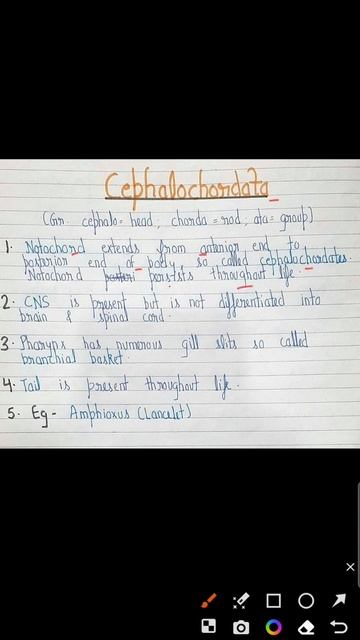 Cephalochordata
(Gr. cephalo = head; chorda = rod; ata = group)
1. Notochord extends from anterior end to
posterior end of body, so called cephalochordates.
Notochord persists throughout life.
2. CNS is present but is not differentiated into
brain & spinal cord.
3. Pharynx has numerous gill slits so called
branchial basket.
4. Tail is present throughout life.
5. Eg - Amphioxus (Lancelet)